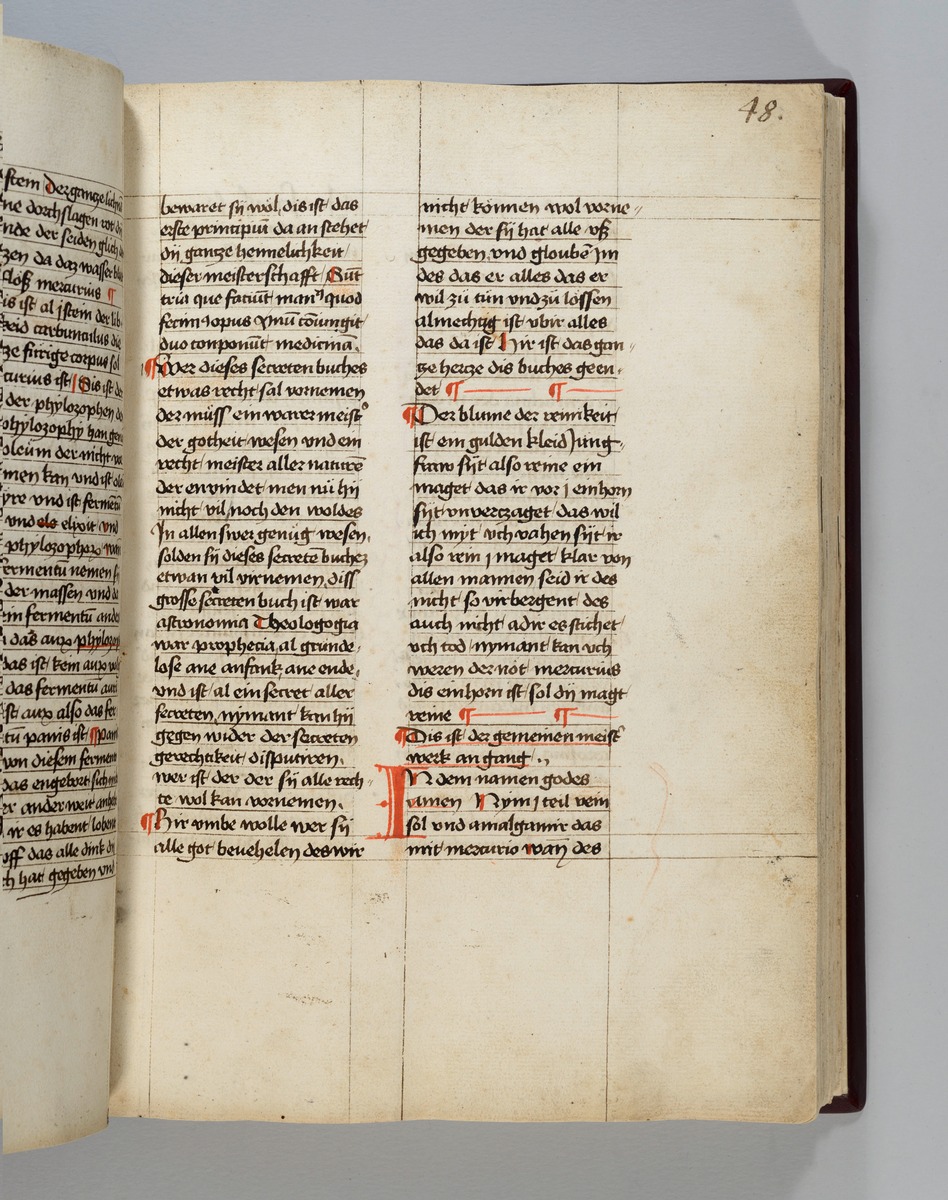 48.
stem der gantze lichna
ne dorchslagen rot
nde der seiden glich
tzen da daz wasser
sloß mercurius ¶
is ist al jstem der
carbunculus die
tze fürige corpus sol
curius ist Dis ist der
der phylozophen
phylozophy han
oleum der nicht
men kan vnd ist
yre vnd ist ferment
vnd els elpoit vnd
phylozophorum wan
fermentū nemen
der massen vnd
in fermentū
i das aurum phylozop
das ist kein aurum
das fermentū
st aurum also das fer
tū panis ist ¶ pani
von diesem ferment
das engebort sich
er ander weit
ir es habent
off das alle dink
ch hat gegeben vnd
bewaret sy wol dis ist das
erste principiū da an stehet
dy gantze heimelichkeit
dieser meisterschafft Sūt
tria que faciūt man quod
fecim opus Vnū cōiungit
duo conponūt medicinā.
¶ Wer dieses secreten buches
etwas recht sal vornemen
der müss ein warer meist
der gotheit wesen vnd ein
recht meister aller naturē
der envindet men nü hy
nicht vil noch den woldes
In allen swer genüg wesen.
solden sy dieses secretē buchez
etwan vil virnemen diss
grosse secreten buch ist war
astronomia Theologogia
war prophecia al gründe
lose ane anfank ane ende
vnd ist al ein secret aller
secreten nymant kan hy
gegen wider der secreten
gerechtikeit disputiren.
wer ist der der sy alle rech
te wol kan vornemen.
¶ Hir vmbe wolle wer sy
alle got bevehelen des wir
nicht können wol vorne
men der sy hat alle vß
gegeben vnd gloubē Im
des das er alles das er
wil zü tün vnd zü lossen
almechtig ist vbir alles
das da ist Hir ist das gan
tze hertze dis buches geen
det ¶ ¶
¶ Der blume der reinikeit
ist ein gulden kleid Jung
fraw syt also reine ein
maget das ir vor j einhorn
syt vnvertzaget das wil
ich myt vch vahen syt ir
also rein j maget klar von
allen mannen seid ir des
nicht so virbergent des
auch nicht adir es stichet
vch tod nymant kan vch
weren der not mercurius
dis einhorn ist sol dy magt
reine ¶ ¶
¶ Dis ist der gemeinen meist
werk an gang
IN dem namen godes
amen Nym j teil vein
sol vnd amalgamir das
mit mercurio wañ des